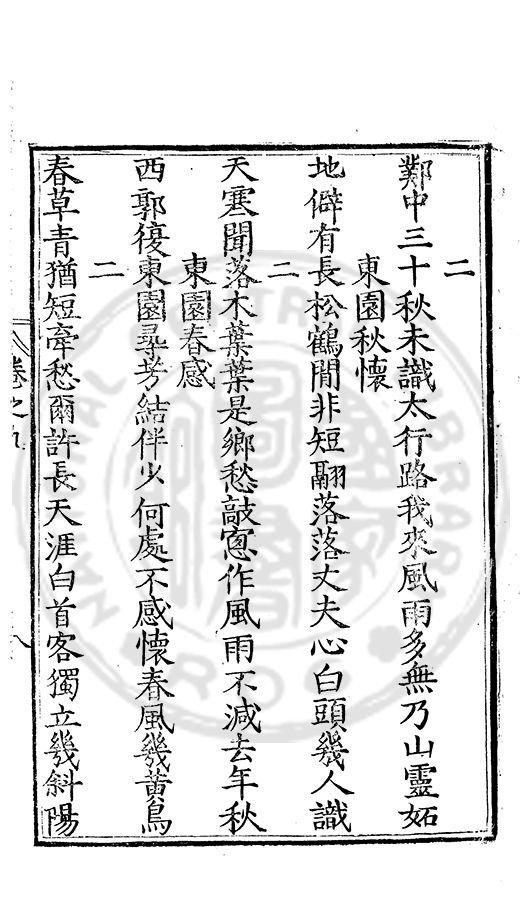 二
鄴中三十秋未識太行路我來風雨多無乃山靈妬
東園秋懷
地僻有長松鶴閒非短翮落落丈夫心白頭幾人識
二
天寒聞落木葉葉是鄉愁敲窻作風雨不減去年秋
東園春感
西郭復東園尋芳結伴少何處不感懷春風幾黃鳥
二
春草青猶短牽愁爾許長天涯白首客獨立幾斜陽
卷之九
八